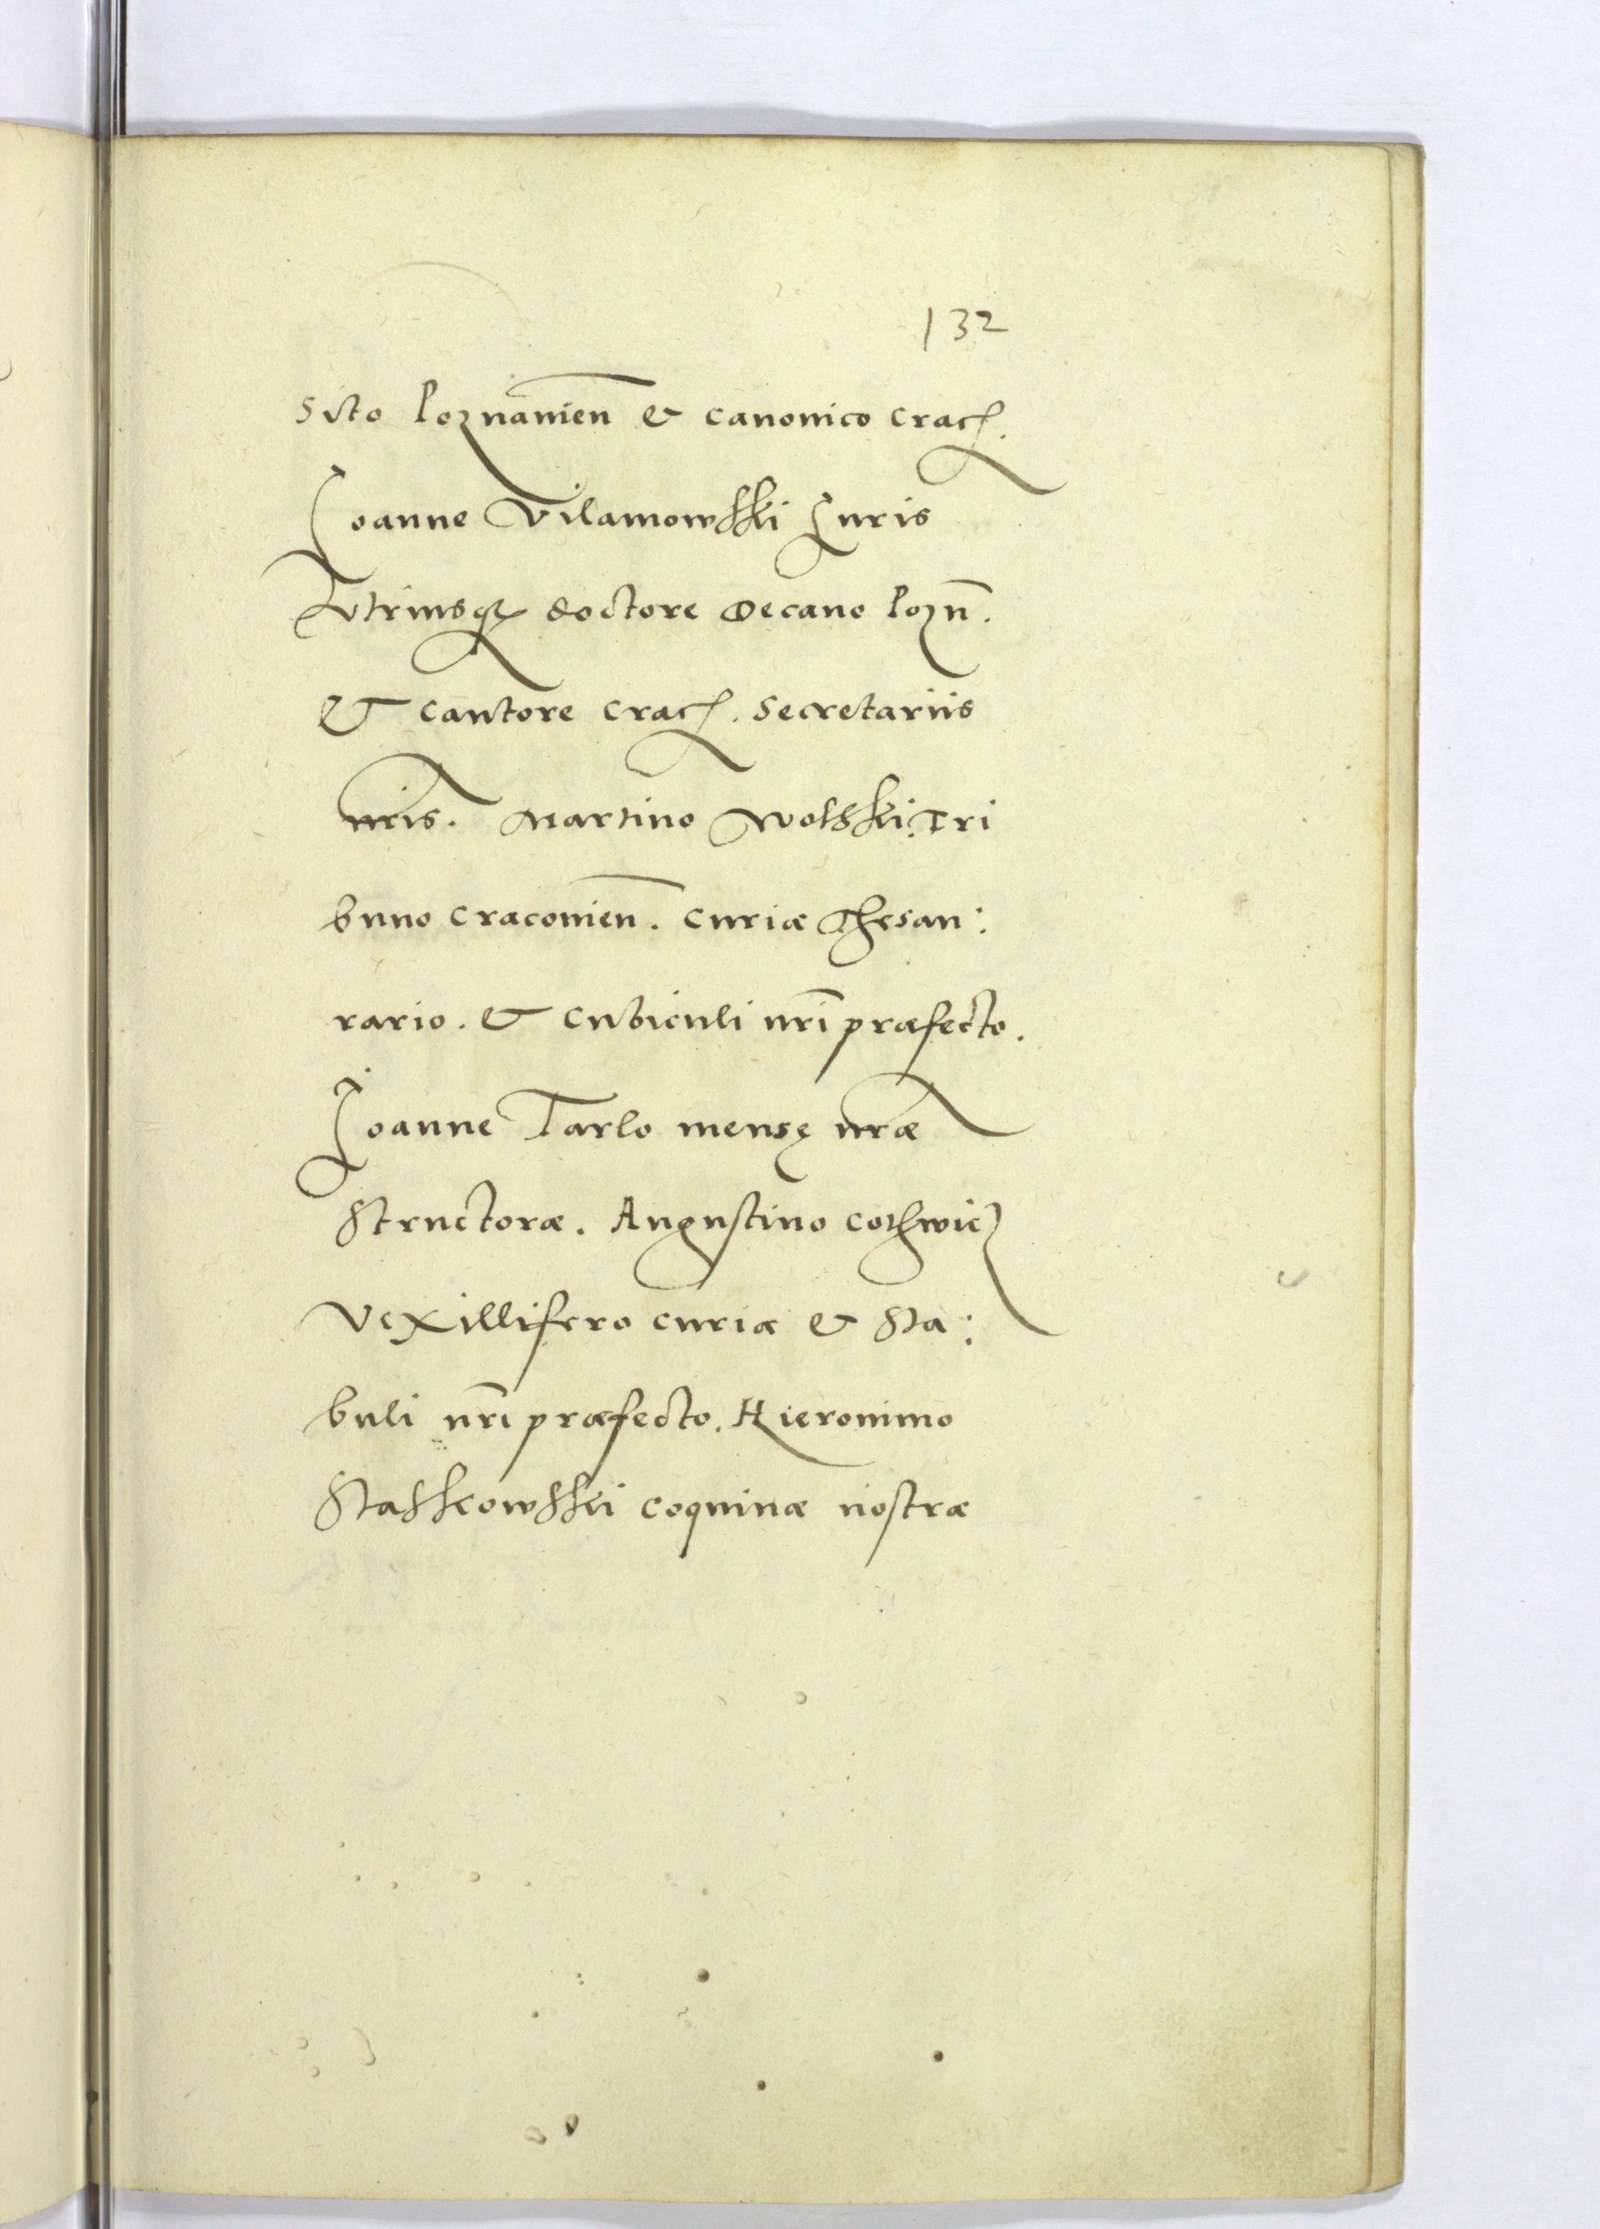 132
sito Poznanień & canonico crac.
Joanne Vilamowski Juris
Vtriusq doctore Decano Pozn̄.
& cantore crac. Secretariis
nris. Martino Wolski Tri
buno cracouień. curiæ Thesau:
rario. & cubiculi nr̄i præfecto.
Joanne Tarlo mensę nræ
structoræ. Augustino cothwicz
Vexillifero curiæ & Sta:
buli nr̄i præfecto. Hieronimo
Staskowski coquinæ nostræ